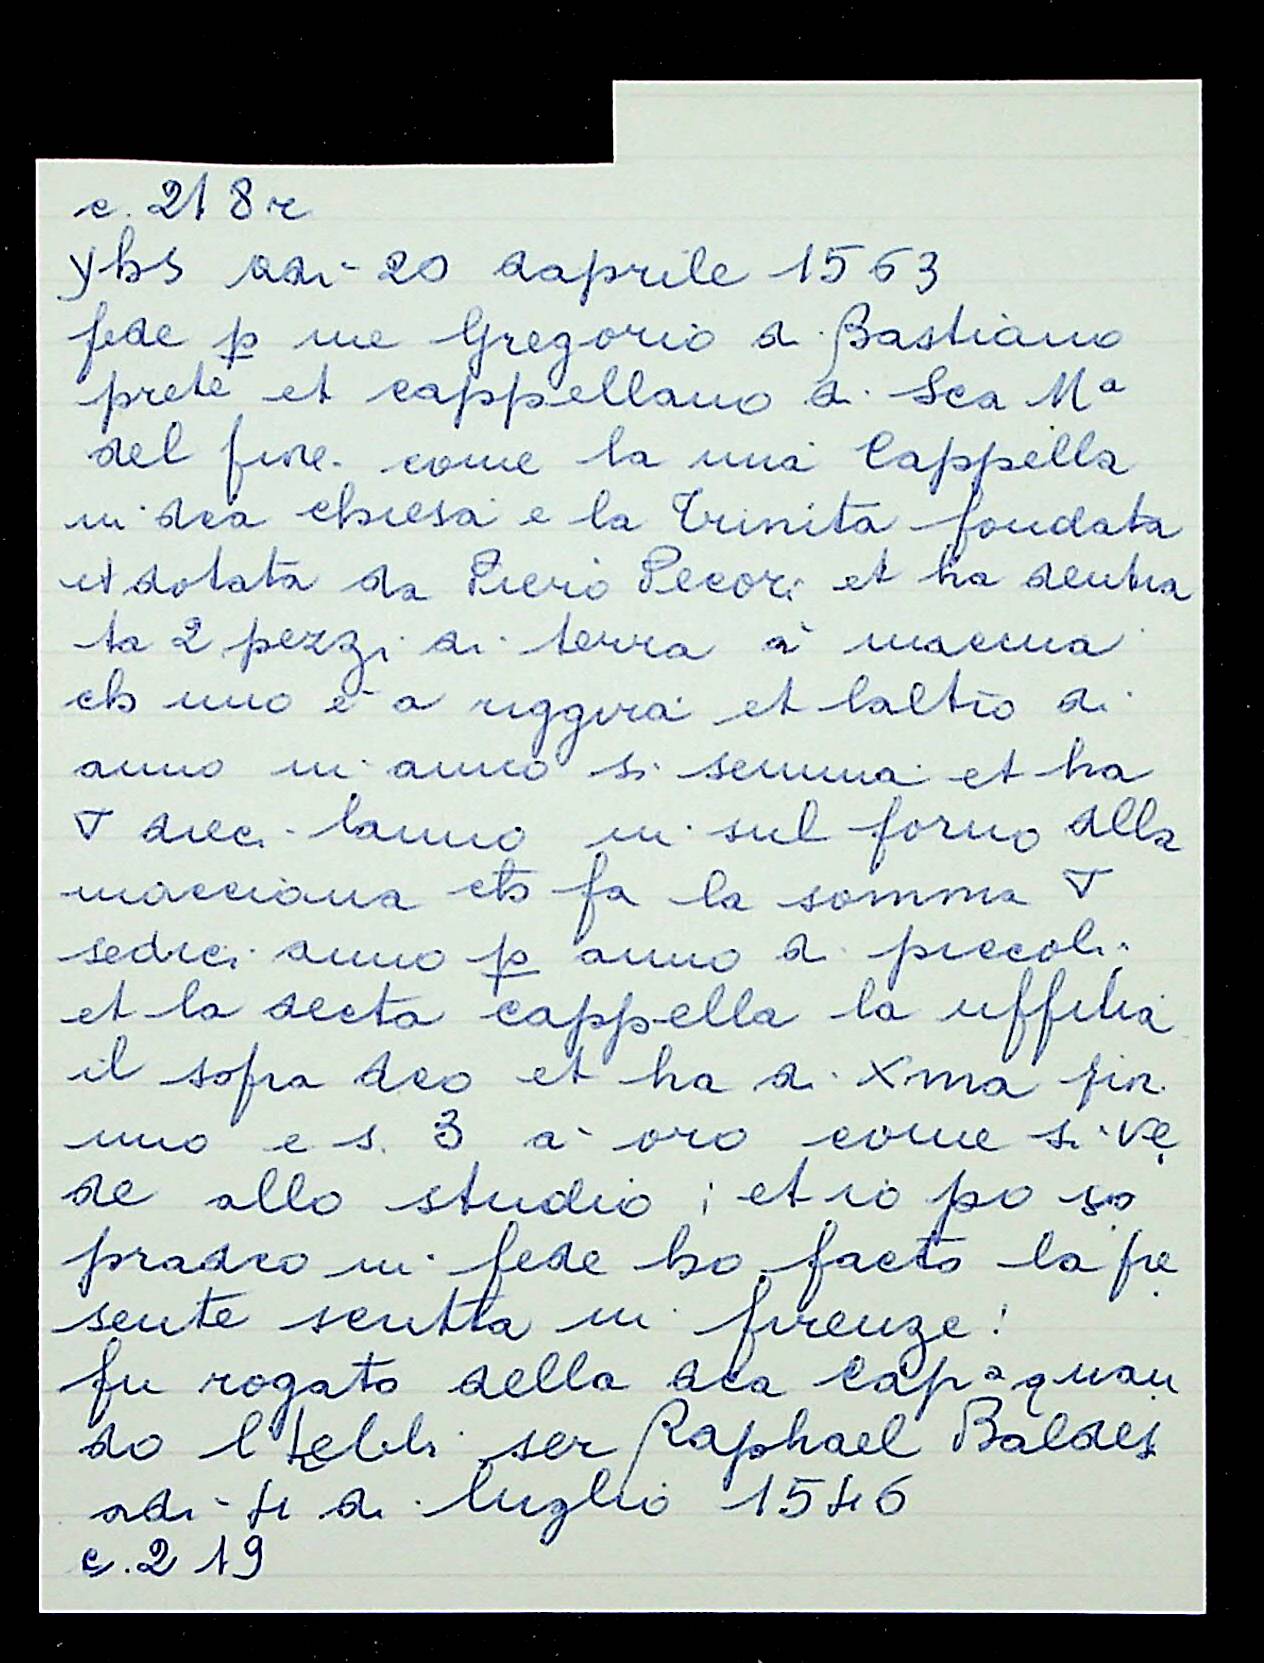 c. 218r
yhs adi - 20 daprile 1563
fede p me Gregorio di Bastiano
prete et cappellano di Sca Mª
del fiore. come la una Cappella
in dca chiesa e la Trinita fondata
et dotata da Piero Pecori et ha dentra
ta 2 pezzi di terra a macina
ch uno e a uggiva et laltro di
anno in anno si semina et ha
∇ dieci lanno in sul forno dlla
macciana ch fa la somma ∇
sedici anno p anno di piccoli.
et la decta cappella la uffitia
il sopra dco et ha di Xma fior.
uno e s. 3 a oro come si ve
de allo studio ; et io po so
pradco in fede ho facto la pre
sente scritta in firenze!
fu rogato della dca Capª quan
do l hebbi ser Raphael Baldes
adi - 4 di luglio 1546
c. 219